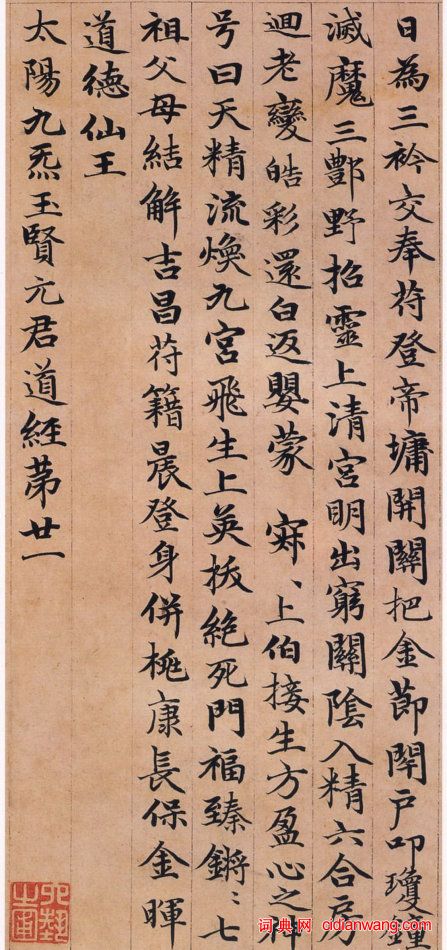 日為三衿交奉苻登帝墉開關把金節開戶叩瓊鍾
滅魔三酆野招靈上清宮明出窮關陰入精六合房
迴老變皓彩還白返嬰蒙 寀〻上伯接生方盈心之神
号曰天精流煥九宮飛生上英拔絕死門福臻鏘〻七
祖父母結解吉昌苻籍晨登身併桃康長保金暉
道德仙王
太陽九炁玉賢元君道經苐廿一
词典网 cidianwang.com